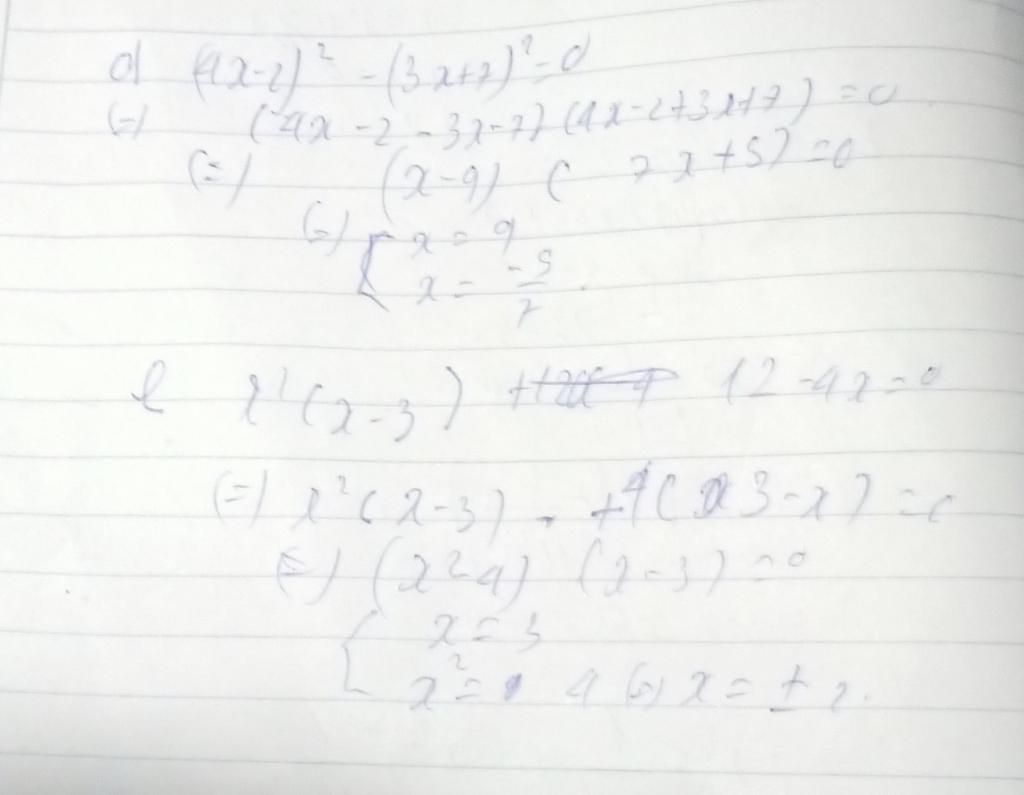 d (4x-2)² - (3x+7)² = 0
(=) (4x - 2 - 3x - 7) (4x - 2 + 3x + 7) = 0
(=) (x - 9) ( 7x + 5) = 0
(=) [ x = 9
x = -5/7 .
e x²(x - 3) 12 - 4x = 0
(=) x²(x - 3) + 4(3 - x) = 0
(=) (x² - 4) (x - 3) = 0
[ x = 3
x² = 4 (=) x = ± 2.